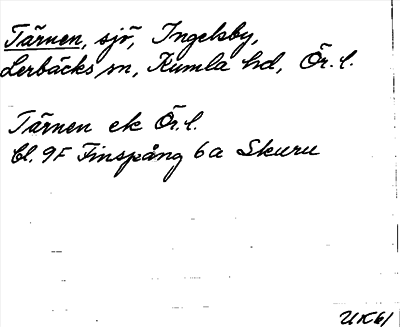 Tärnen, sjö, Ingelsby,
Lerbäcks sn, Kumla hd, Ör. l.
Tärnen ek Ör. l.
Bl. 9F Finspång 6a Skuru
UK61